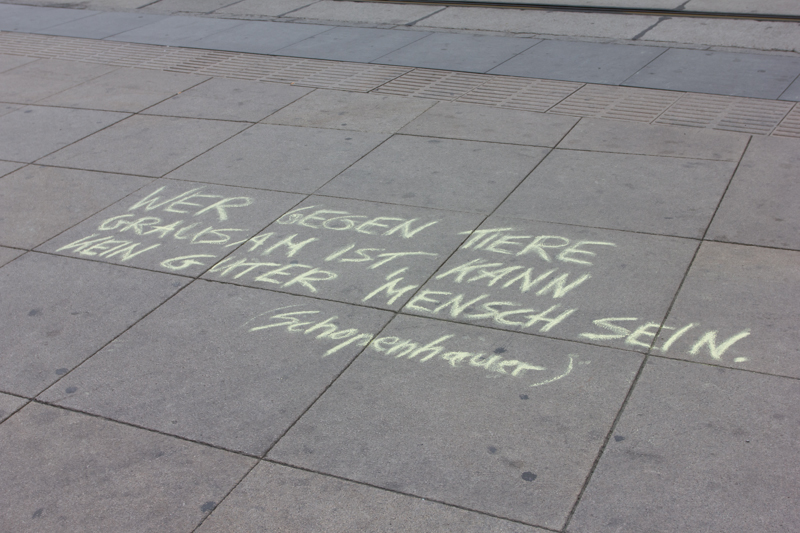 WER GEGEN TIERE
GRAUSAM IST KANN
KEIN GUTER MENSCH SEIN.
(Schopenhauer)